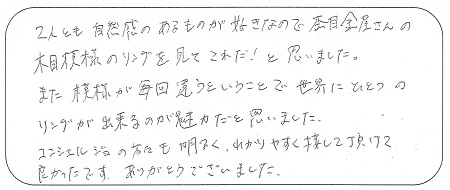 2人とも自然感のあるものが好きなので杢目金屋さんの
木目模様のリングを見てこれだ！と思いました。
また模様が毎回違うということで世界にひとつの
リングが出来るのが魅力だと思いました。
コンシェルジュの方々も明るく、わかりやすく接して頂けて
良かったです。ありがとうございました。